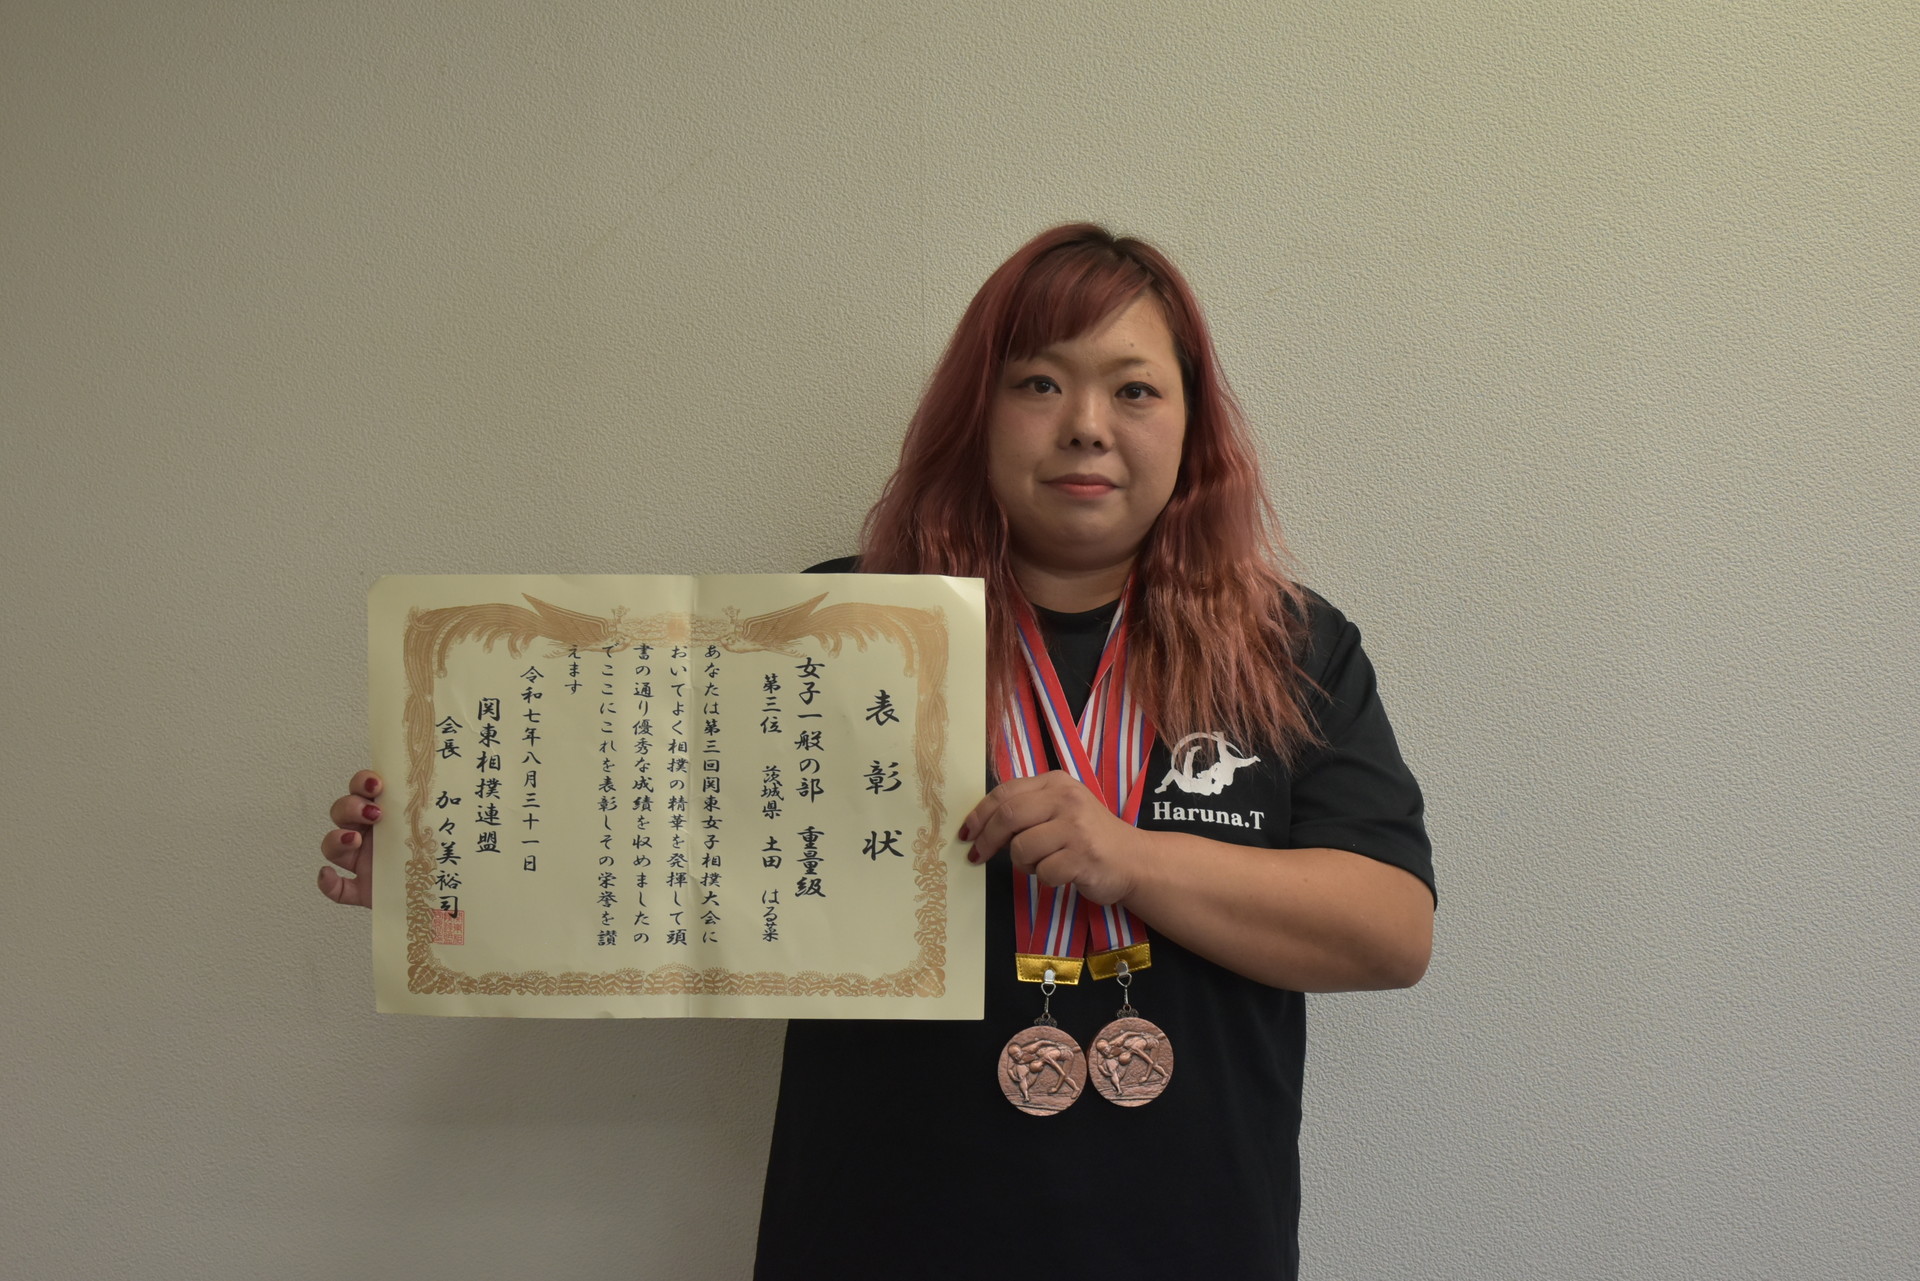 表彰状
女子一般の部 重量級
第三位 茨城県 土田 はる菜
あなたは第三回関東女子相撲大会に
おいてよく相撲の精華を発揮して頭
書の通り優秀な成績を収めましたの
でここにこれを表彰しその栄誉を讃
えます
令和七年八月三十一日
関東相撲連盟
会長 加々美裕司
Haruna.T